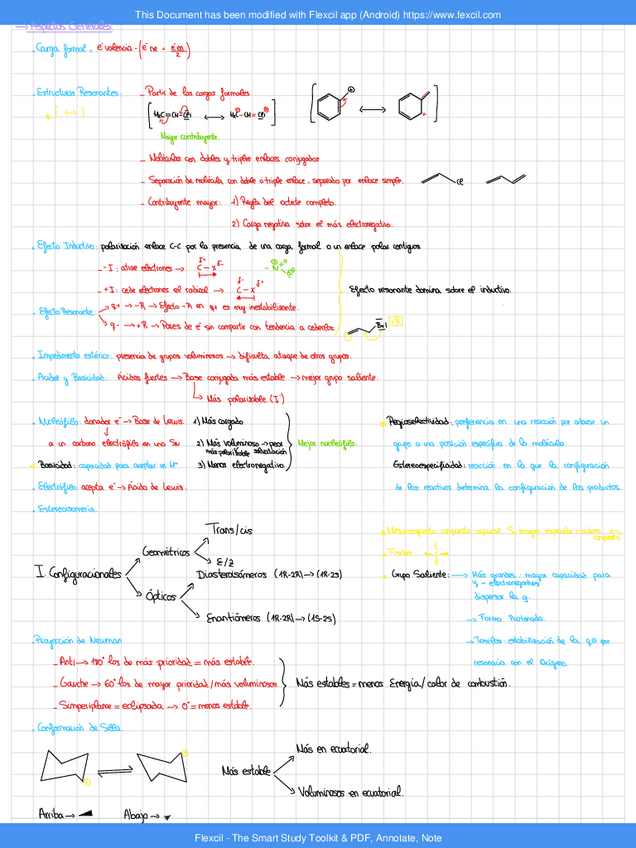 This Document has been modified with Flexcil app (Android) https://www.flexcil.com
→ Aspectos Generales
. Carga formal = e⁻ valencia - (e⁻ ne + e⁻ en/2)
. Estructuras Resonantes: - Partir de las cargas formales
[ ↔ ]
Mayor contribuyente.
- Moléculas con dobles y triples enlaces conjugados
- Separación de molécula con doble o triple enlace, separado por enlace simple.
- Contribuyente mayor: 1) Regla del octete completo.
2) Carga negativa sobre el más electronegativo.
. Efecto Inductivo: polarización enlace C-C por la presencia de una carga formal o un enlace polar contiguos
- - I: atrae electrones → C - X
- + I: cede electrones al radical → C - X
Efecto resonante domina sobre el inductivo.
. Efecto Resonante: q+ → -R → Efecto -R en q+ es muy inestabilizante.
q- → +R → Pares de e⁻ sin compartir con tendencia a cederlos.
. Impedimento estérico: presencia de grupos voluminosos → dificulta ataque de otros grupos.
. Acidez y Basicidad: Ácidos fuertes → Base conjugada más estable → mejor grupo saliente.
→ Más polarizable (I⁻)
. Nucleófilo: donador e⁻ → Base de Lewis. 1) Más cargado
a un carbono electrófilo en una SN 2) Más voluminoso → peor solvatación
más polarizable
Mejor nucleófilo.
. Basicidad: capacidad para aceptar un H⁺ 3) Menos electronegativo
. Electrófilo: acepta e⁻ → Ácido de Lewis.
. Regioselectividad: preferencia en una reacción por atacar un
grupo o una posición específica de la molécula.
Estereoespecificidad: reacción en la que la configuración
de los reactivos determina la configuración de los productos.
. Estereoisomería:
I. Configuracionales
Geométricos
Trans/cis
E/Z
Ópticos
Diasteroisómeros (1R-2R) → (1R-2S)
Enantiómeros (1R-2R) → (1S-2S)
. Grupo Saliente: → Más grandes: mayor capacidad para
y - electronegativos
dispersar la q.
→ Forma Protonada.
→ Tosilos: estabilización de la q⊖ por
resonancia con el Oxígeno.
. Proyección de Newman
- Anti → 180° los de más prioridad = más estable.
- Gauche → 60° los de mayor prioridad/más voluminosos.
- Simperiplanar = eclipsada → 0° = menos estable.
Más estables = menos Energía/calor de combustión.
. Conformación de Silla
Más estable
Más en ecuatorial.
Voluminosos en ecuatorial.
Arriba → Abajo →
Flexcil - The Smart Study Toolkit & PDF, Annotate, Note